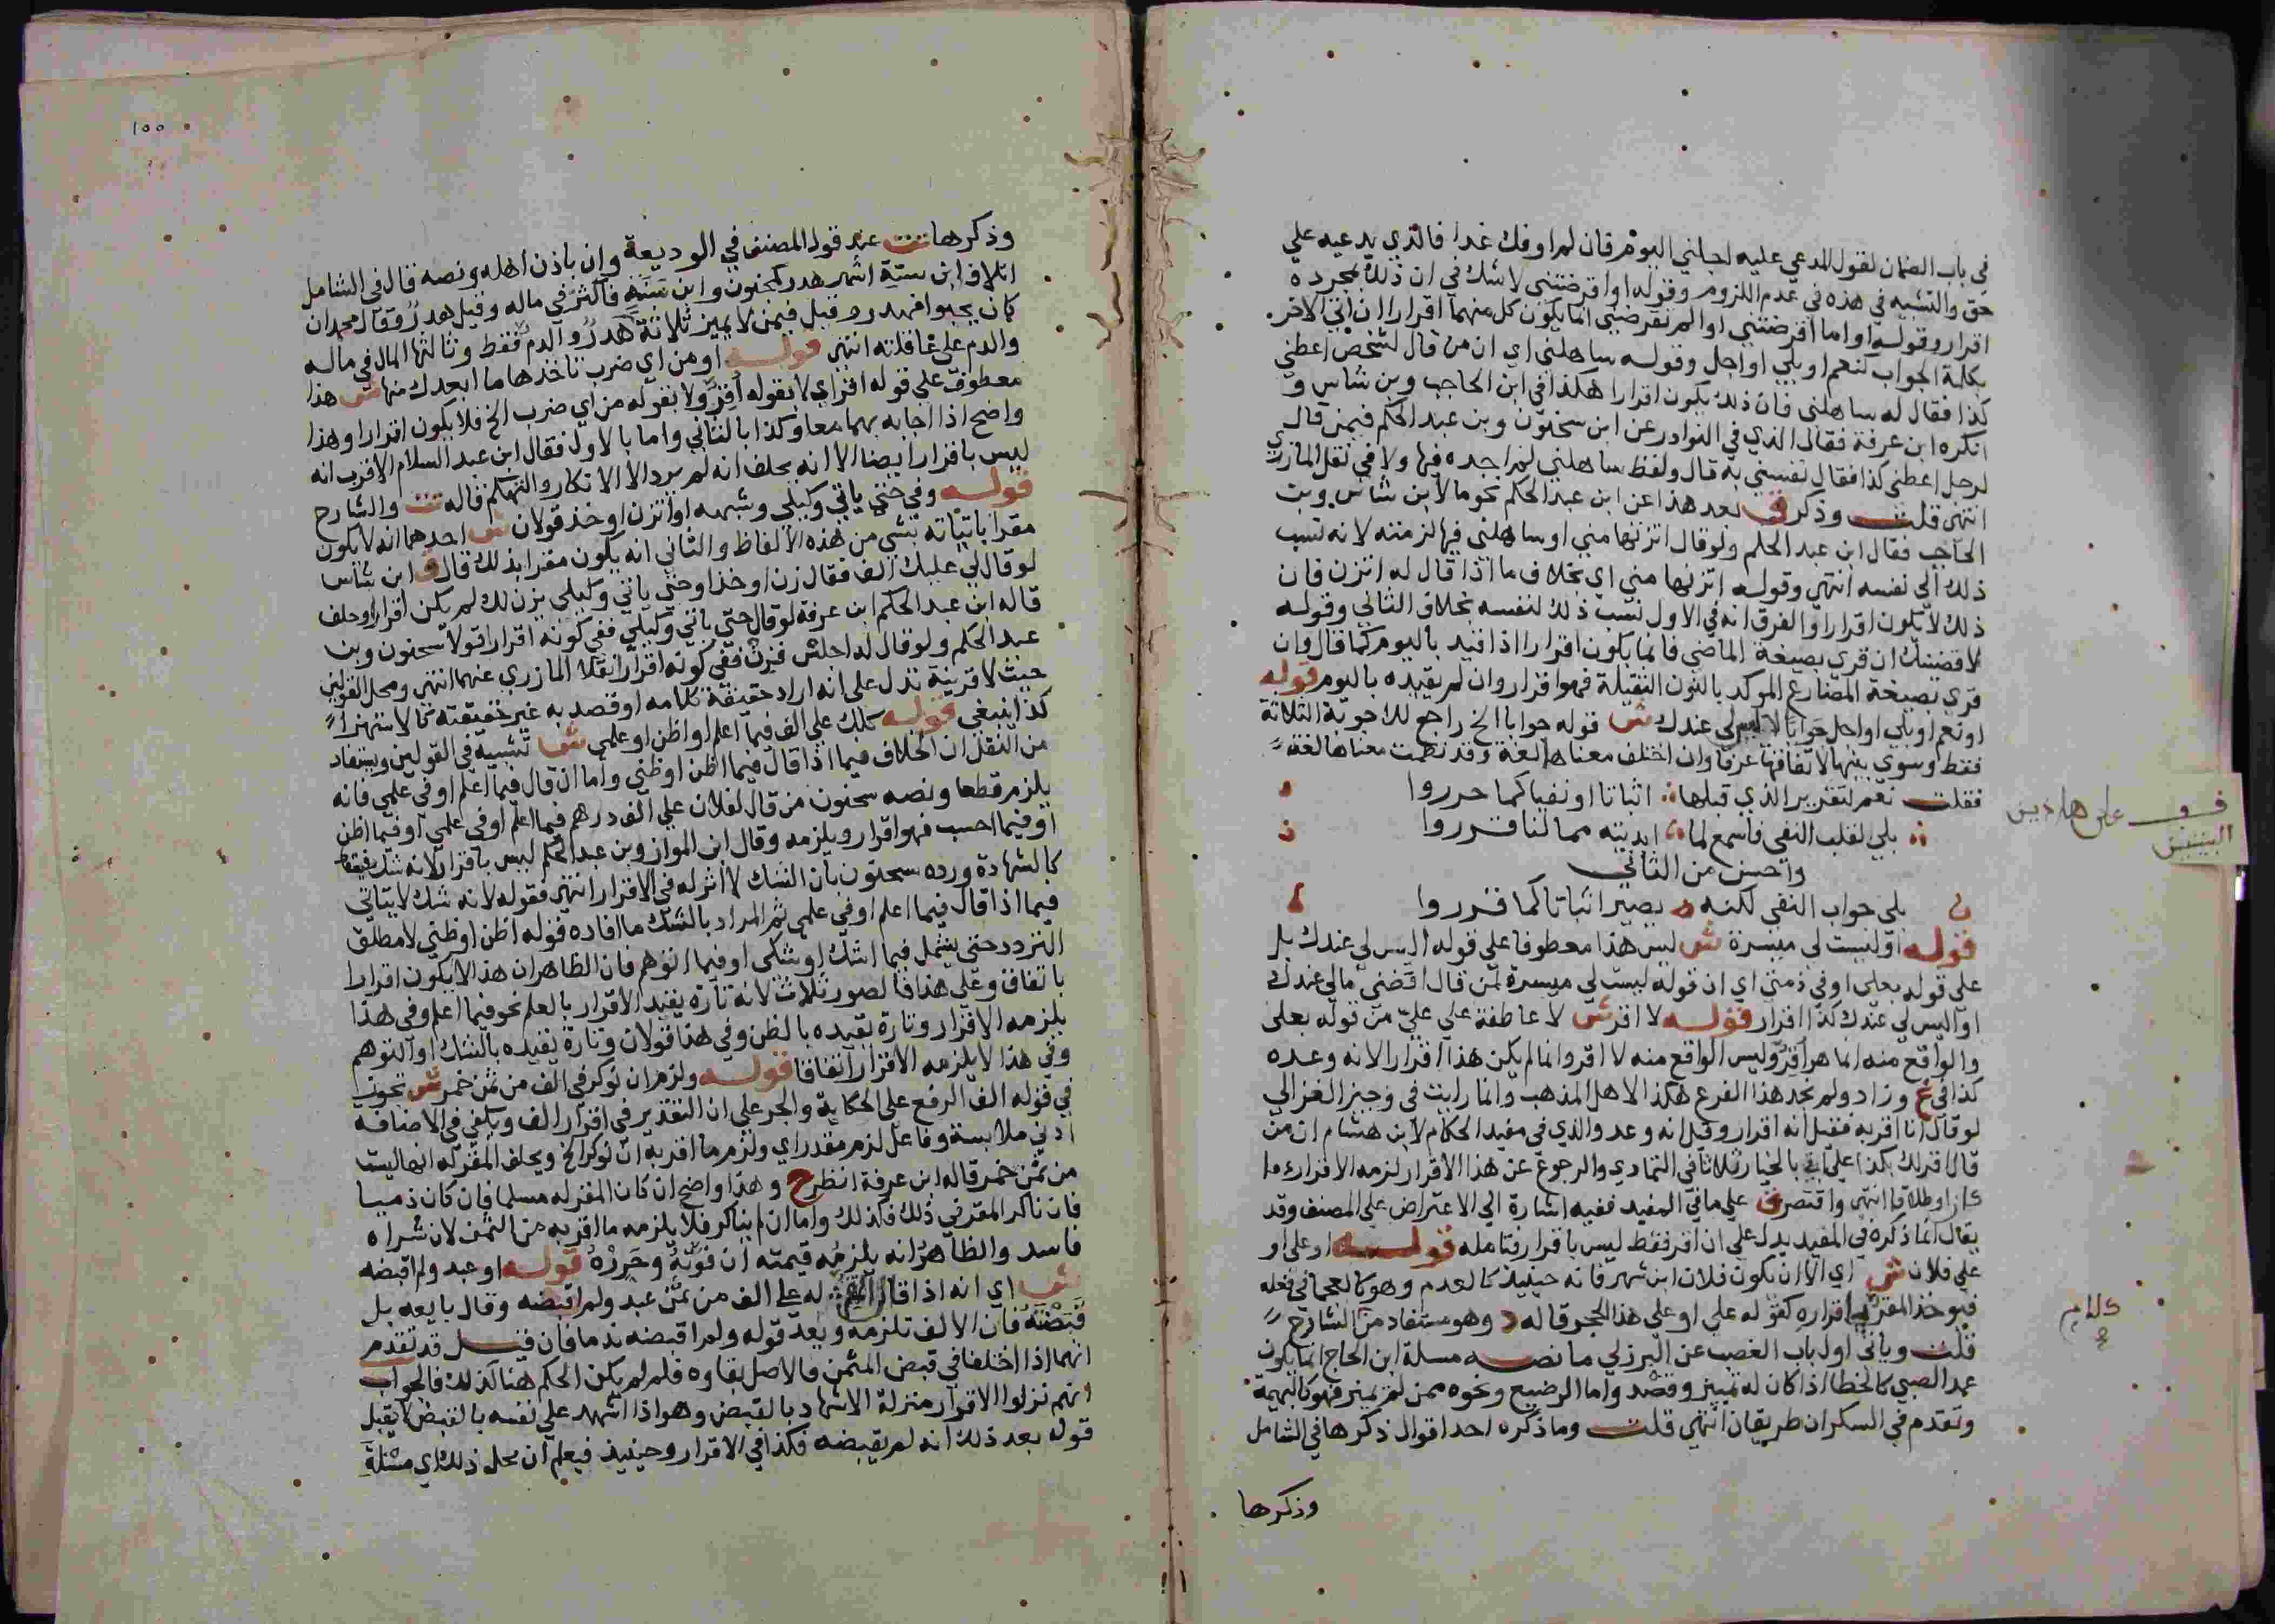 في باب الضمان لقول المدعي عليه اجلني اليوم فان لم اوفك غدا فالذي يدعيه علي
حق والتشبيه في هذه في عدم اللزوم وقوله او اقرضتني لا شك في ان ذلك بمجرده
اقرار وقوله او اما اقرضتني او الم تقرضني انما يكون كل منهما اقرارا ان اتي الاخر
بكلمة الجواب كنعم او بلي او اجل وقوله ساهلني اي ان من قال لشخص اعطني
كذا فقال له ساهلني فان ذلك يكون اقرارا هكذا في ابن الحاجب وبن شاس و
انكره ابن عرفة فقال الذي في النوادر عن ابن سحنون وبن عبد الحكم فيمن قال
لرجل اعطني كذا فقال نفسني به قال ولفظ ساهلني لم اجده فيها ولا في نقل المازري
انتهي قلت وذكر ق بعد هذا عن ابن عبد الحكم نحو ما لابن شاس وبن
الحاجب فقال ابن عبد الحكم ولو قال اتزنها مني او ساهلني فيها لزمته لانه نسب
ذلك الي نفسه انتهي وقوله اتزنها مني اي بخلاف ما اذا قال له اتزن فان
ذلك لا يكون اقرارا والفرق انه في الاول نسب ذلك لنفسه بخلاف الثاني وقوله
لاقضينك ان قري بصيغة الماضي فانما يكون اقرارا اذا قيد باليوم كما قال وان
قري بصيغة المضارع الموكد بالنون الثقيلة فهو اقرار وان لم يقيده باليوم قوله
او نعم او بلي او اجل جوابا لاليس لي عندك ش قوله جوابا الخ راجع للاجوبة الثلاثة
فقط وسوي بينها لاتفاقها عرفا وان اختلف معناها لغة وقد نظمت معناها لغة
فقلت نعم لتقرير الذي قبلها اثباتا او نفيا كما حرروا
بلي لقلب النفي فاسمع لما ابديته مما لنا قرروا
واحسن من الثاني
بلي جواب النفي لكنه يصير اثباتا كما قرروا
قوله او ليست لي ميسرة ش ليس هذا معطوفا علي قوله اليس لي عندك بل
علي قوله بعلي او في ذمتي اي ان قوله ليست لي ميسرة لمن قال اقضني مالي عندك
او اليس لي عندك كذا اقرار قوله لا اقر ش لا عاطفة علي علي من قوله بعلي
والواقع منه انما هو اقر وليس الواقع منه لا اقر وانما لم يكن هذا اقرارا لانه وعده
كذا في غ وزاد ولم نجد هذا الفرع هكذا لاهل المذهب وانما رايت في وجيز الغزالي
لو قال انا اقر به فقيل انه اقرار وقيل انه وعد والذي في مفيد الحكام لابن هشام ان من
قال اقر لك بكذا علي اني بالخيار ثلاثا في التمادي والرجوع عن هذا الاقرار لزمه الاقرار ما
كان او طلاقا انتهي واقتصر ق علي ما في المفيد ففيه اشارة الي الاعتراض علي المصنف وقد
يقال انما ذكره في المفيد يدل علي ان اقر فقط ليس باقرار فتامله قوله او علي او
علي فلان ش اي الا ان يكون فلان ابن شهر فانه حينيذ كالعدم وهو كالعجما في فعله
فيوخذ المقر باقراره كقوله علي او علي هذا الحجر قاله د وهو مستفاد من الشارح
قلت وياتي اول باب الغصب عن البرزلي ما نصه مسلة ابن الحاج انما يكون
عمد الصبي كالخطا اذا كان له تمييز وقصد واما الرضيع ونحوه ممن لم يميز فهو كالبهيمة
وتقدم في السكران طريقان انتهي قلت وما ذكره احد اقوال ذكرها في الشامل
وذكرها
قف علي هاذين
البيتين
كلام
١٥٥
وذكرها تت عند قول المصنف في الوديعة وان باذن اهله ونصه قال في الشامل
اتلاف ابن ستة اشهر هدر كمجنون وابن سنة فاكثر في ماله وقيل هدر وقال محمد ان
كان يحبوا فهدر وقيل فيمن لا يميز ثلاثة هدر والدم فقط وثالثها المال في ماله
والدم علي عاقلته انتهي قوله او من اي ضرب تاخذها ما ابعدك منها ش هذا
معطوف علي قوله اقر اي لا بقوله اقر ولا بقوله من اي ضرب الخ فلا يكون اقرارا وهذا
واضح اذا اجابه بهما معا وكذا بالثاني واما بالاول فقال ابن عبد السلام الاقرب انه
ليس باقرار ايضا الا انه يحلف انه لم يرد الا الانكار والتهكم قاله تت والشارح
قوله وفي حتي ياتي وكيلي وشبهه او اتزن او خذ قولان ش احدهما انه لا يكون
مقرا باتيانه بشي من هذه الالفاظ والثاني انه يكون مقرا بذلك قال ق ابن شاس
لو قال لي عليك الف فقال زن او خذ او حتي ياتي وكيلي يزن لك لم يكن اقرارا وحلف
قاله ابن عبد الحكم ابن عرفة لو قال حتي ياتي وكيلي ففي كونه اقرارا قولا سحنون وبن
عبد الحكم ولو قال له اجلس فزن ففي كونه اقرارا نقلا المازري عنهما انتهي ومحل القولين
حيث لا قرينة تدل علي انه اراد حقيقة كلامه او قصد به غير حقيقته كالاستهزا
كذا ينبغي قوله كلك علي الف فيما اعلم او اظن او علمي ش تشبيه في القولين ويستفاد
من النقل ان الخلاف فيما اذا قال فيما اظن او ظني واما ان قال فيما اعلم او في علمي فانه
يلزم قطعا ونصه سحنون من قال لفلان علي الف درهم فيما اعلم او في علمي او فيما اظن
او فيما احسب فهو اقرار ويلزمه وقال ابن المواز وبن عبد الحكم ليس باقرار لانه شك
كالشهادة ورده سحنون بان الشك لا اثر له في الاقرار انتهي فقوله لانه شك لا يتاتي
فيما اذا قال فيما اعلم او في علمي ثم المراد بالشك ما افاده قوله اظن او ظني لا مطلق
التردد حتي يشمل فيما اشك او شكي او فيما اتوهم فان الظاهر ان هذا لا يكون اقرارا
باتفاق وعلي هذا فالصور ثلاث لانه تارة يقيد الاقرار بالعلم نحو فيما اعلم وفي هذا
يلزمه الاقرار وتارة يقيده بالظن وفي هذا قولان وتارة يقيده بالشك او التوهم
وفي هذا لا يلزمه الاقرار اتفاقا قوله ولزم ان نوكر في الف من ثمن خمر ش يجوز
في قوله الف الرفع علي الحكاية والجر علي ان التقدير في اقرار الف ويكفي في الاضافة
ادني ملابسة وفاعل لزم مقدر اي ولزم ما اقر به ان نوكر الخ ويحلف المقر له انها ليست
من ثمن خمر قاله ابن عرفة انظر ح وهذا واضح ان كان المقر له مسلما فان كان ذميا
فان ناكر المقر في ذلك فكذلك واما ان لم يناكر فلا يلزمه ما اقر به من الثمن لان شراه
فاسد والظاهر انه يلزمه قيمته ان فوته وحرره قوله او عبد ولم اقبضه
ش اي انه اذا قال له علي الف من ثمن عبد ولم اقبضه وقال بايعه بل
قبضته فان الالف تلزمه ويعد قوله ولم اقبضه ندما فان قيل قد تقدم
انهما اذا اختلفا في قبض المثمن فالاصل بقاوه فلم لم يكن الحكم هنا كذلك فالجواب
انهم نزلوا الاقرار منزلة الاشهاد بالقبض وهو اذا اشهد علي نفسه بالقبض لا يقبل
قوله بعد ذلك انه لم يقبضه فكذا في الاقرار وحينيذ فيعلم ان محل ذلك اي مسئلة